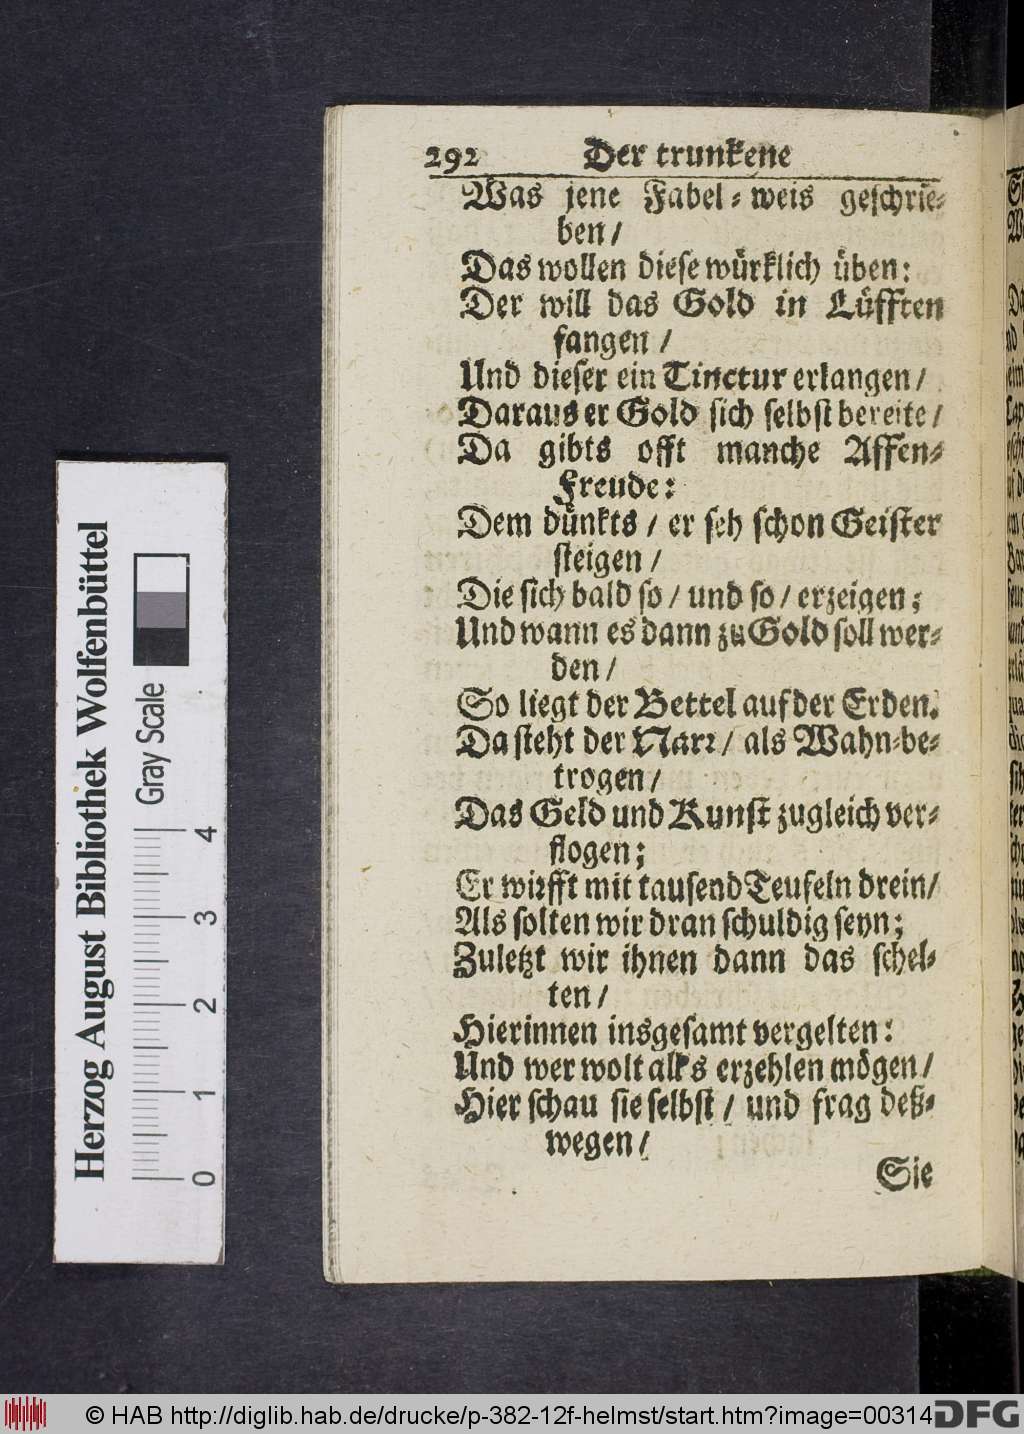 292 Der trunkene
Was jene Fabel-weis geschrie-
ben/
Das wollen diese würklich üben:
Der will das Gold in Lüfften
fangen/
Und dieser ein Tinctur erlangen/
Daraus er Gold sich selbst bereite/
Da gibts offt manche Affen-
Freude:
Dem dünkts/ er seh schon Geister
steigen/
Die sich bald so/ und so/ erzeigen;
Und wann es dann zu Gold soll wer-
den/
So liegt der Bettel auf der Erden.
Da steht der Narr/ als Wahn-be-
trogen/
Das Geld und Kunst zugleich ver-
flogen;
Er wirfft mit tausend Teufeln drein/
Als solten wir dran schuldig seyn;
Zuletzt wir ihnen dann das schel-
ten/
Hierinnen insgesamt vergelten:
Und wer wolt alles erzehlen mögen/
Hier schau sie selbst/ und frag deß-
wegen/
Sie
Herzog August Bibliothek Wolfenbüttel
Gray Scale
0 1 2 3 4
© HAB http://diglib.hab.de/drucke/p-382-12f-helmst/start.htm?image=00314
DFG